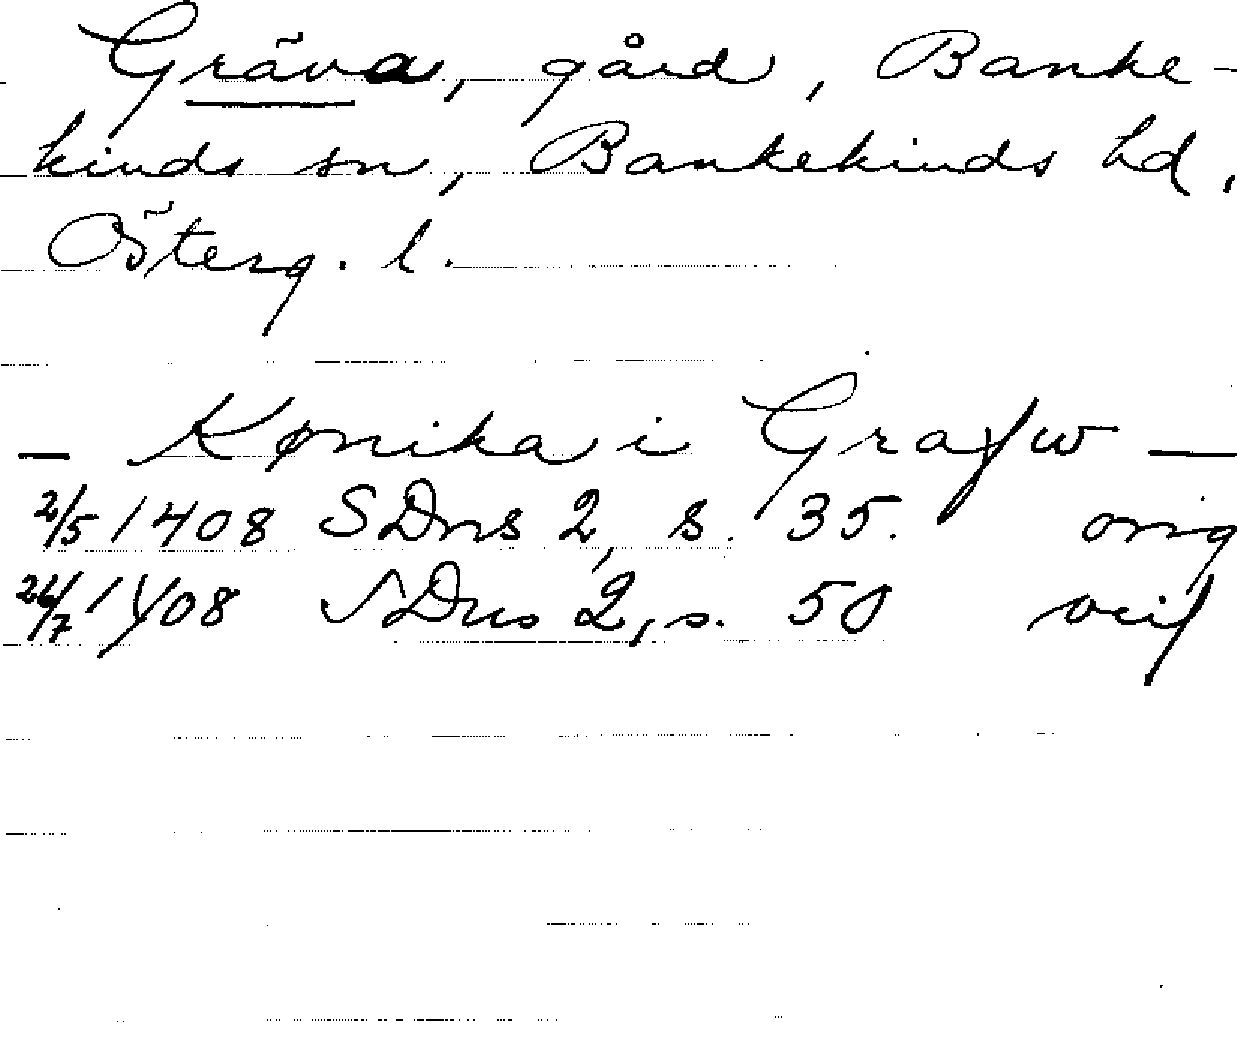 Gräva, gård, Banke-
kinds sn, Bankekinds hd,
Österg. l.
— Kønika i Grafw —
2/5 1408 SDns 2, s. 35. orig
26/7 1408 SDns 2, s. 50